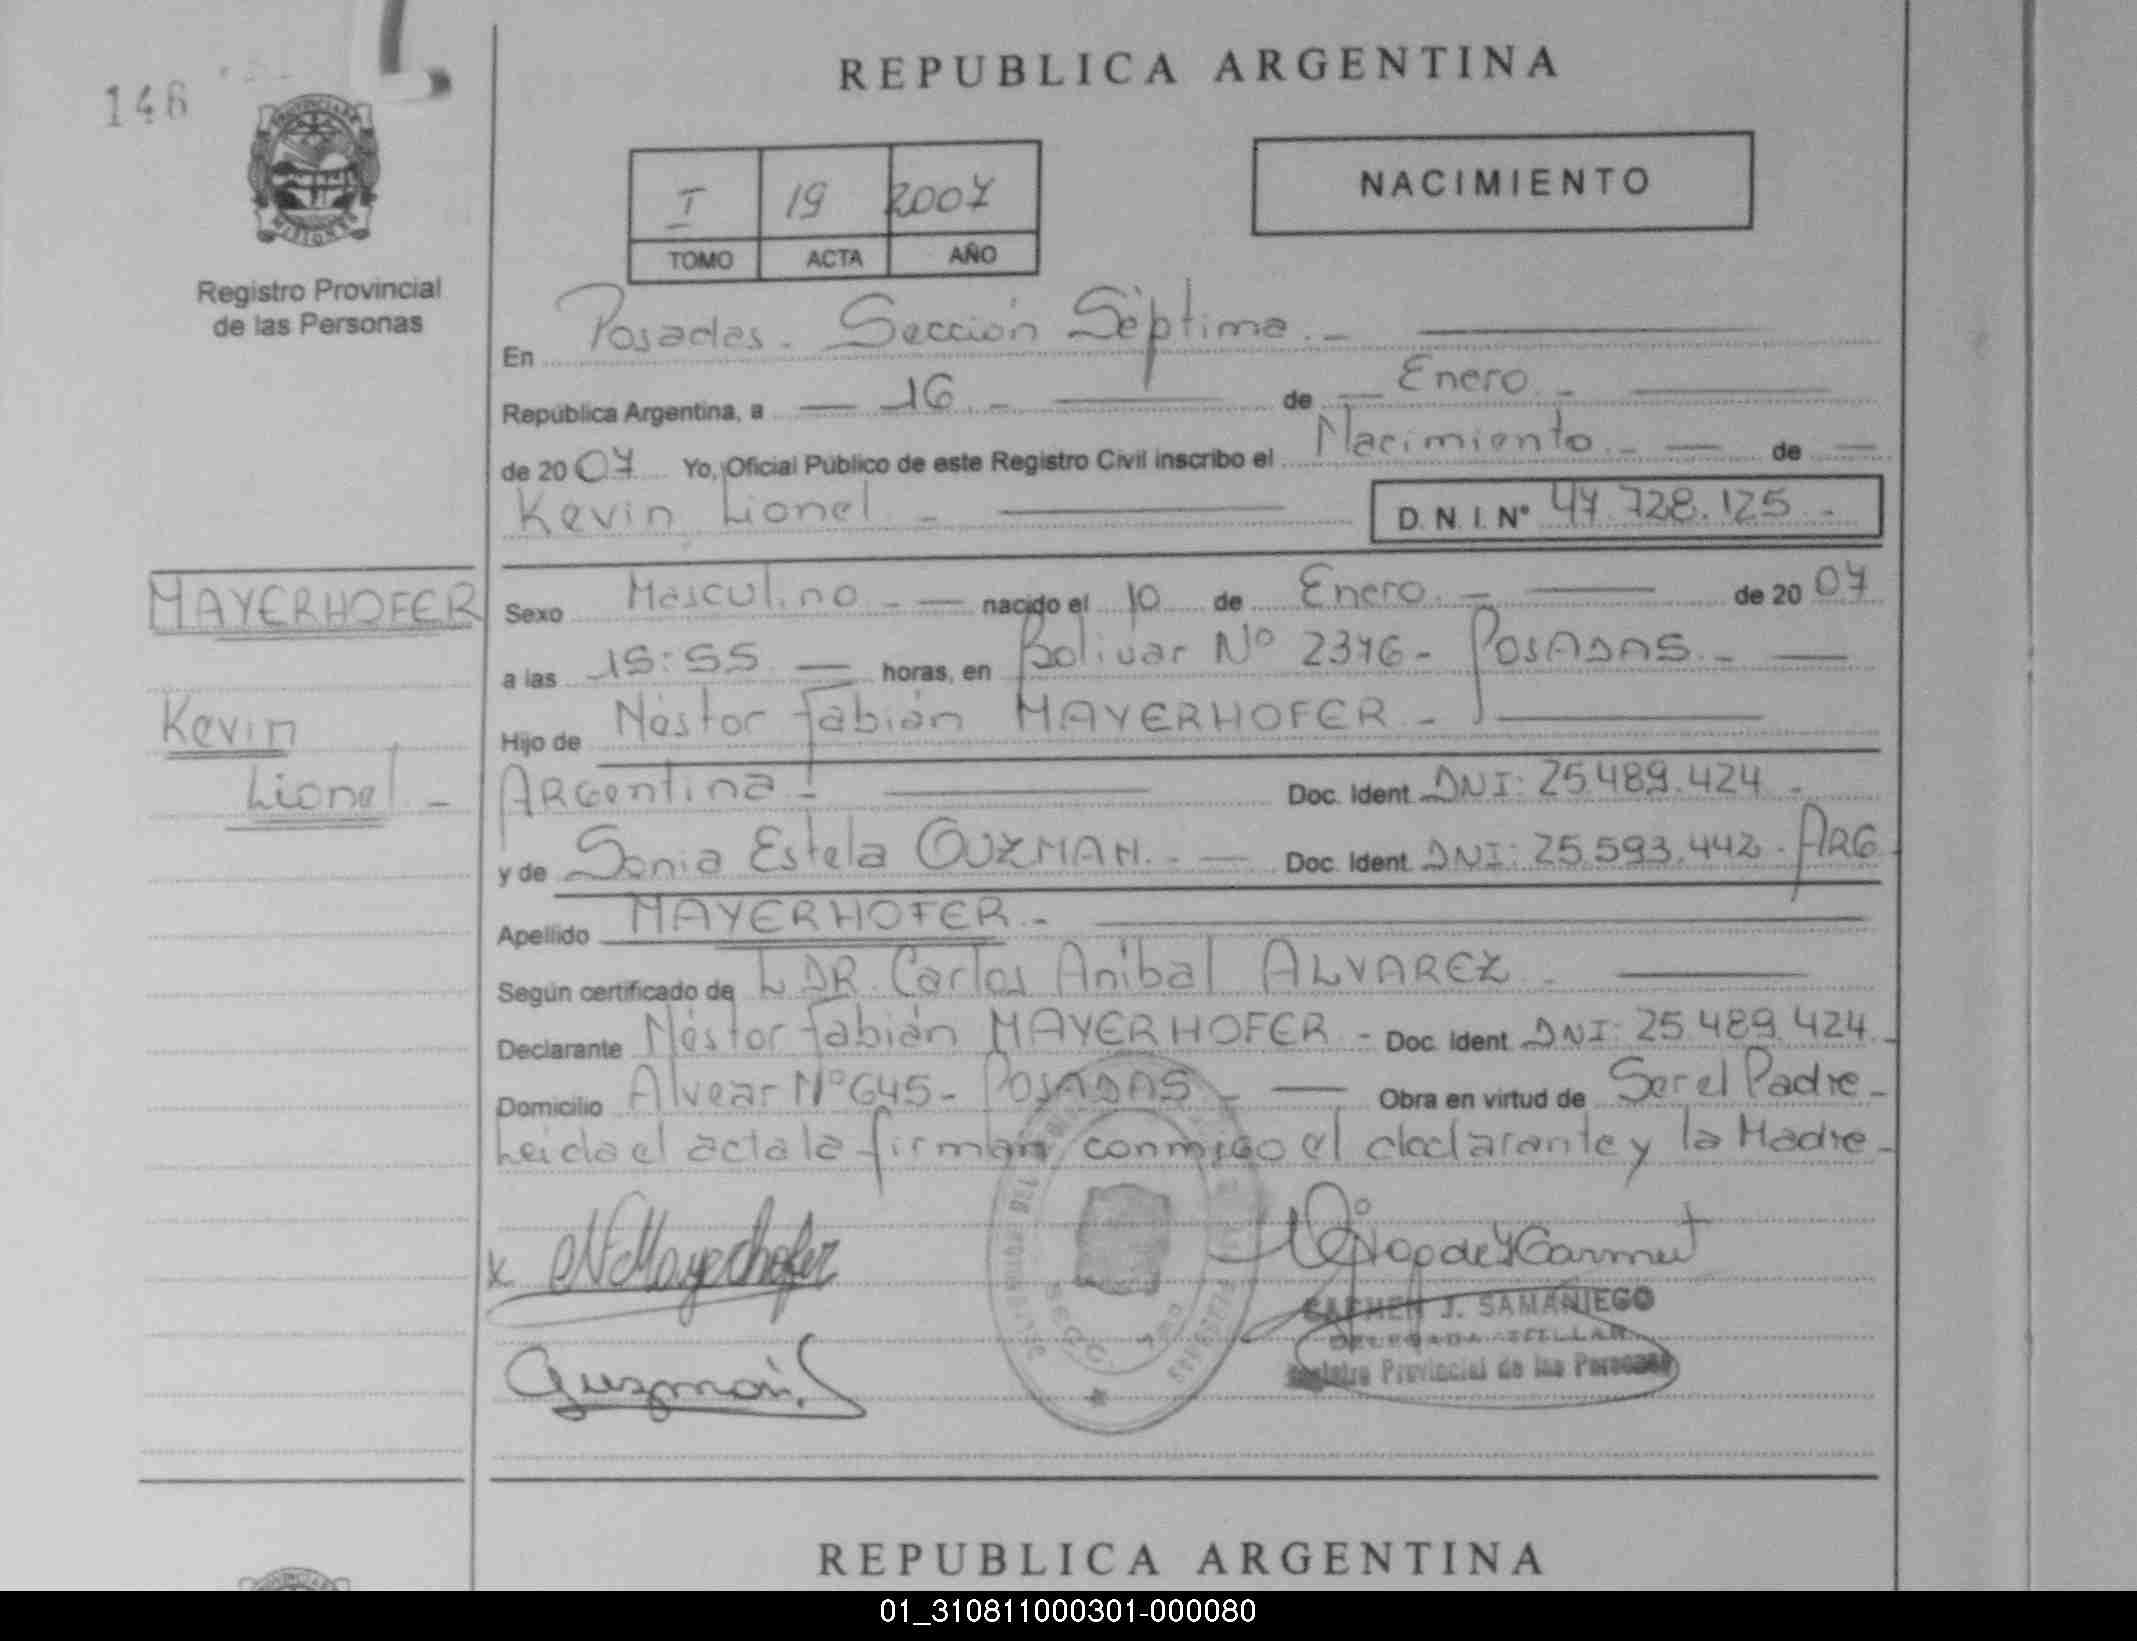 146
REPUBLICA ARGENTINA
I 19 2007
TOMO ACTA AÑO
NACIMIENTO
PROVINCIA DE
MISIONES
Registro Provincial
de las Personas
En Posadas. Sección Séptima.-
República Argentina, a 16.- de Enero.-
de 2007 Yo, Oficial Público de este Registro Civil inscribo el Nacimiento.- de
Kevin Lionel - D.N.I. Nº 47.728.125.-
MAYERHOFER
Kevin
Lionel.-
Sexo Masculino.- nacido el 10 de Enero.- de 2007
a las 15:55 horas, en Bolivar Nº 2376- POSADAS.-
Hijo de Néstor Fabián MAYERHOFER.-
Argentina.- Doc. Ident. DNI: 25.489.424.-
y de Sonia Estela GUZMAN.- Doc. Ident. DNI: 25.593.442. ARG
Apellido MAYERHOFER.-
Según certificado de DR. Carlos Anibal ALVAREZ.-
Declarante Néstor Fabián MAYERHOFER.- Doc. Ident. DNI: 25.489.424.-
Domicilio Alvear Nº 645- POSADAS.- Obra en virtud de Ser el Padre.-
Leida el acta la firman conmigo el declarante y la Madre.-
x N F Mayerhofer
Guzmán S
CARMEN J. SAMANIEGO
DELEGADA TITULAR
Registro Provincial de las Personas
REPUBLICA ARGENTINA
01_310811000301-000080